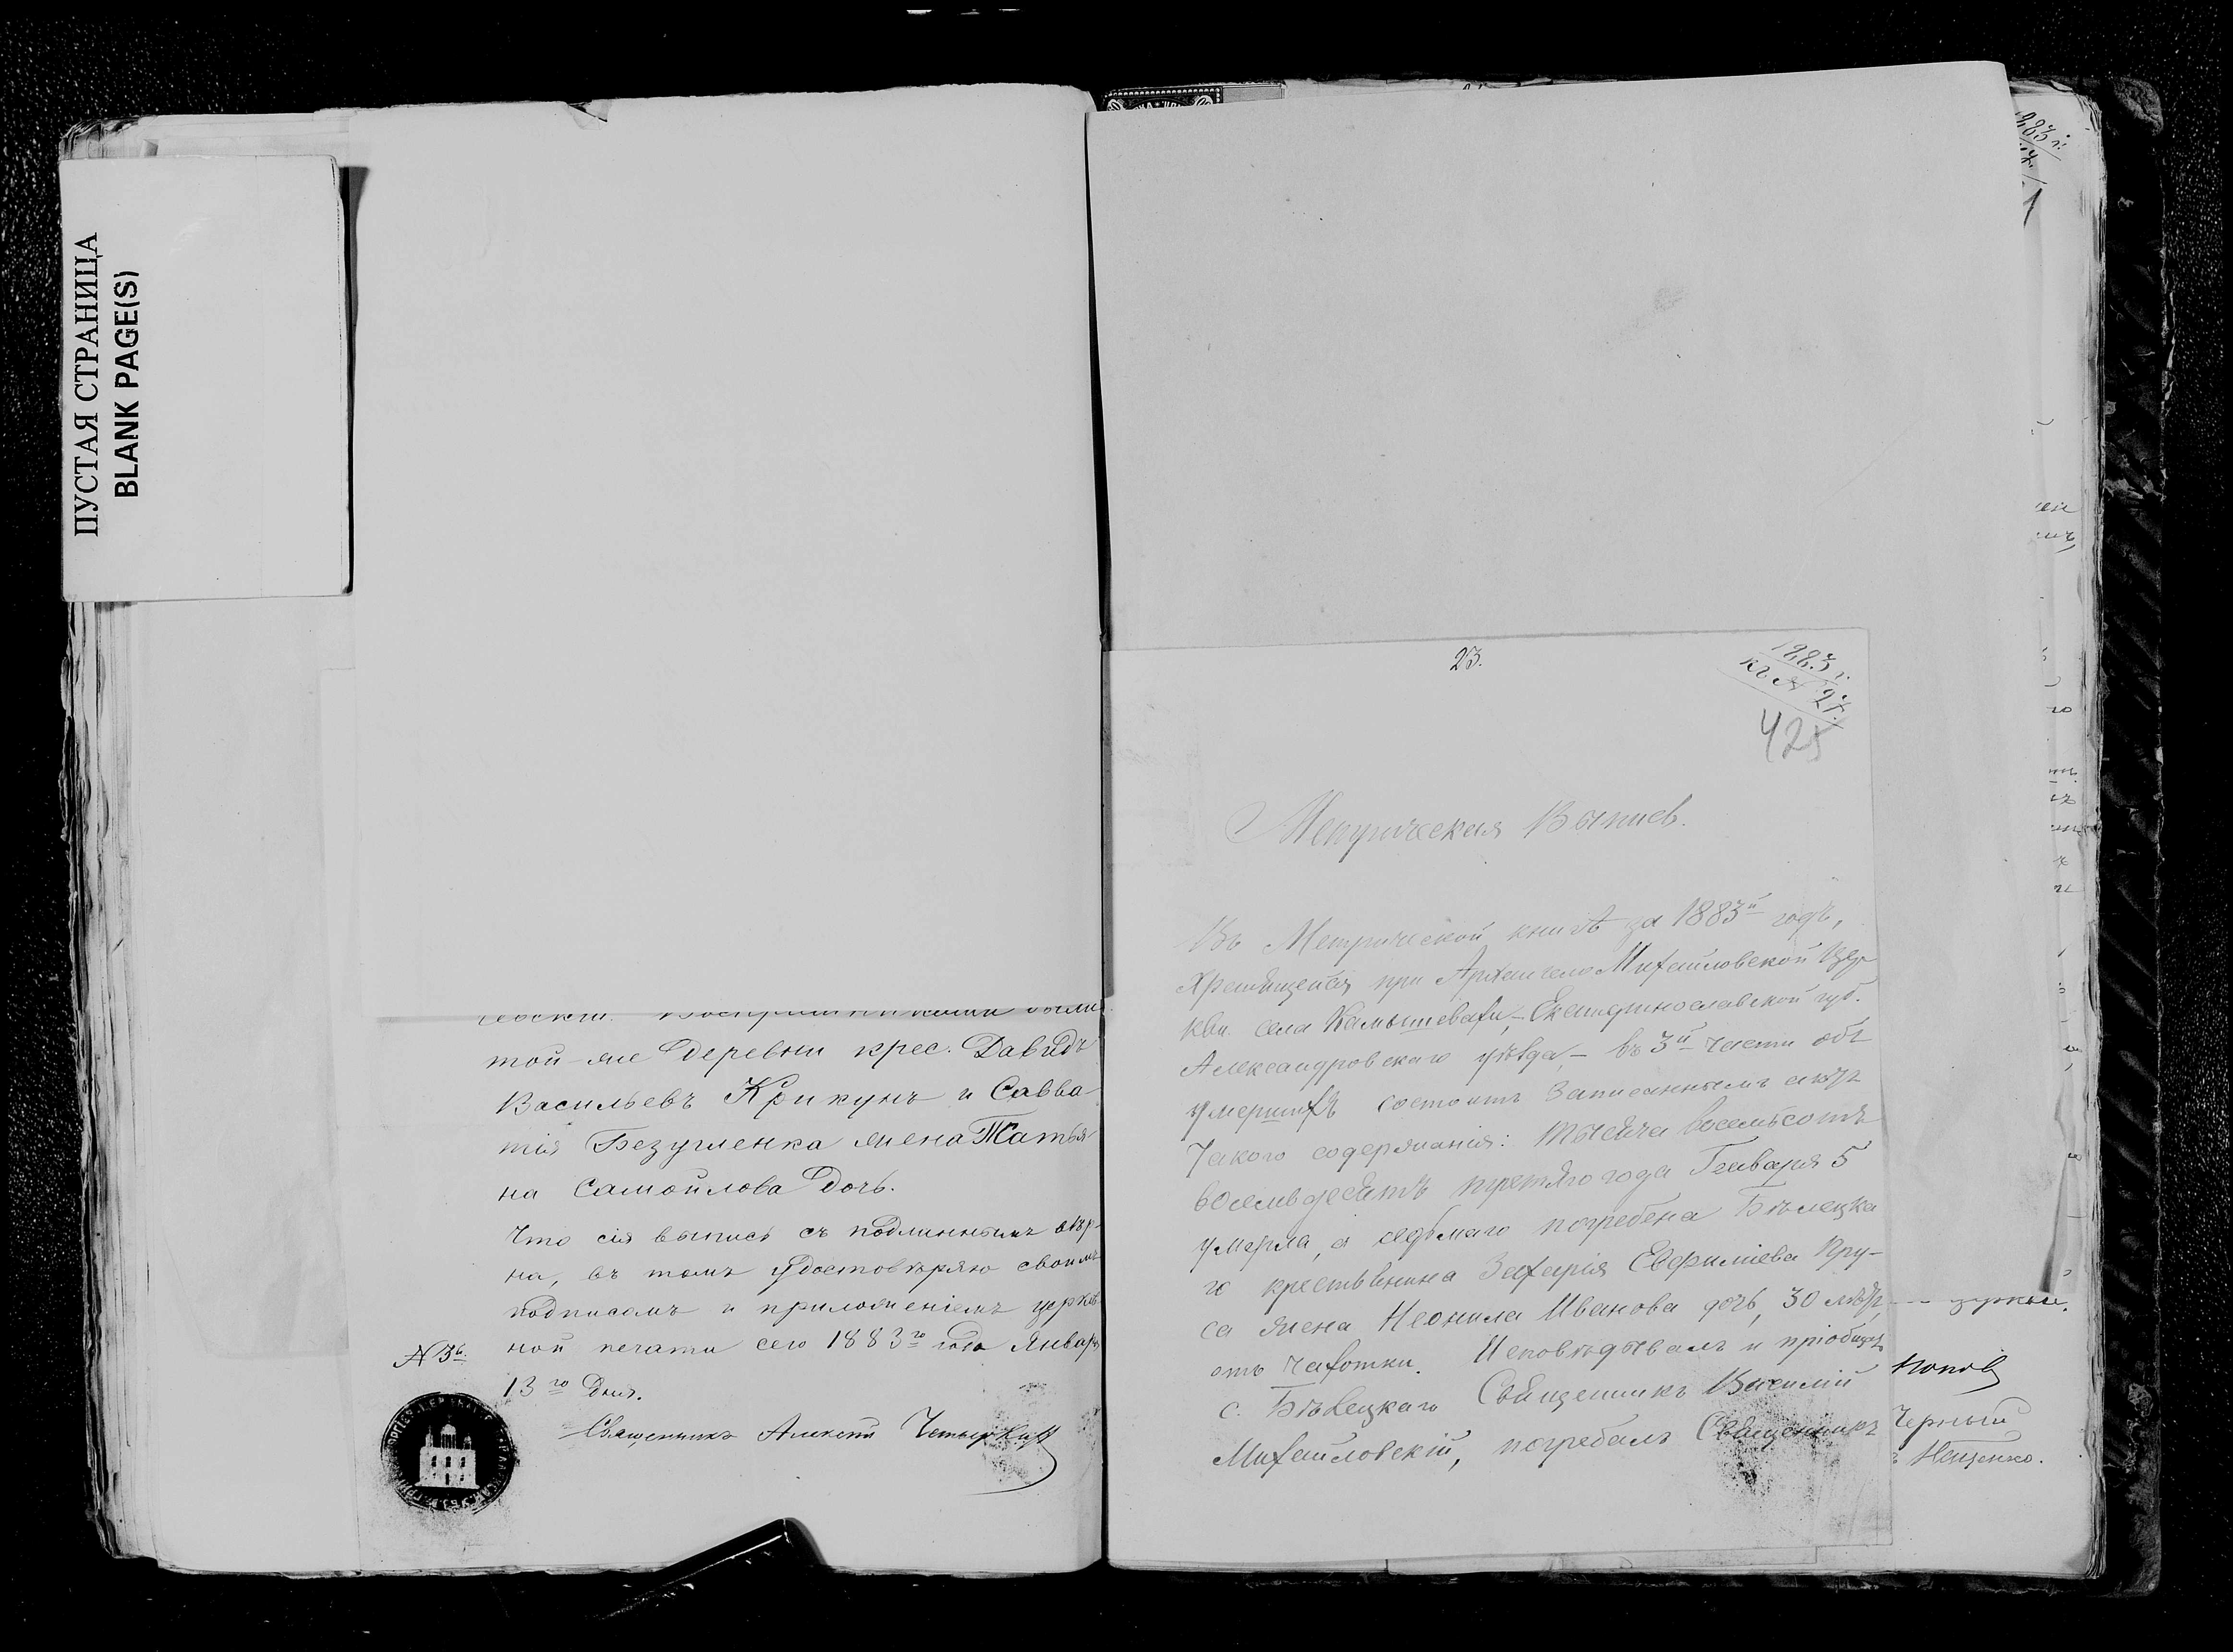 ПУСТАЯ СТРАНИЦА
BLANK PAGE(S)
были
той-же деревни крес. Давидъ
Васильевъ Крикунъ и Савва-
тія Безугленка жена Татья-
на Самойлова дочь.
Что сія выпись съ подлиннымъ вѣр-
на, въ томъ удостовѣряю своимъ
подписомъ и приложеніемъ церков-
ной печати сего 1883го года Января
№ 36.
13го Дня.
Священникъ Алексѣй
23.
1883 г.
къ № 27.
425
Метрическая Выпись.
Въ Метрической книгѣ за 1883й годъ,
хранящейся при Архангело Михайловской Цер-
кви села Камышевахи, Екатеринославской губ.
Александровскаго уѣзда, – въ 3й части объ
умершихъ состоитъ записаннымъ актъ
такого содержанія: тысяча восемьсотъ
восемьдесятъ третяго года Генваря 5
умерла, а седьмаго погребена Бѣлецка
го крестьянина Захарія Евфиміева Пру-
са жена Неонила Иванова дочь, 30 лѣтъ,
отъ чахотки. Исповѣдывалъ и пріобщ
с. Бѣлецкаго Священникъ Василій
Михайловскій, погребалъ Священникъ
1883 г.
церкви.
Поповъ
Черный
Ищенко.